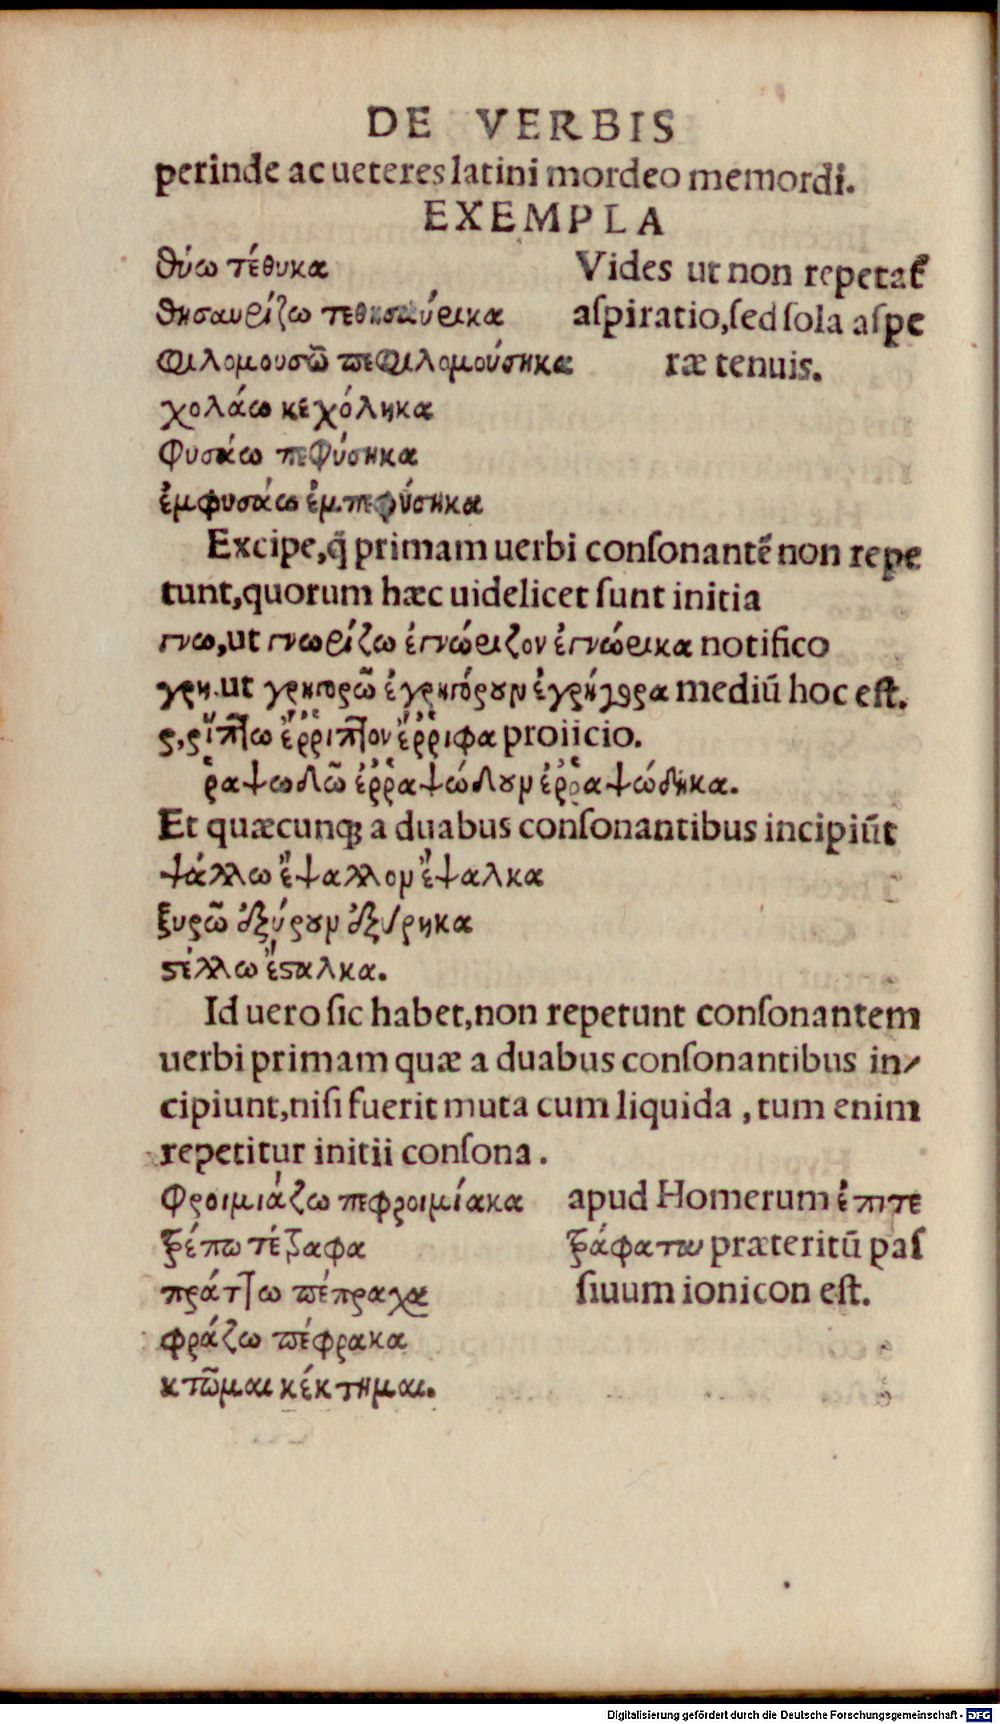 DE VERBIS
perinde ac ueteres latini mordeo memordi.
EXEMPLA
θύω τέθυκα
θησαυρίζω τεθησαύρικα
φιλομουσῶ πεφιλομούσηκα
χολάω κεχόληκα
φυσάω πεφύσηκα
ἐμφυσάω ἐμπεφύσηκα
Vides ut non repetat᷑
aſpiratio,ſed ſola aſpe
ræ tenuis.
Excipe,q̃ primam uerbi conſonantẽ non repe
tunt,quorum hæc uidelicet ſunt initia
γνω,ut γνωρίζω ἐγνώριζον ἐγνώρικα notifico
γρη.ut γρηγορῶ ἐγρηγόρουν ἐγρήγορα mediũ hoc eſt.
ρ,ρίπτω ἔῤῥιπτον ἔῤῥιφα proiicio.
ῥαψωδῶ ἐῤῥαψώδουν ἐῤῥαψώδηκα.
Et quæcunqꝫ a duabus conſonantibus incipiũt
ψάλλω ἔψαλλον ἔψαλκα
ξυρῶ ἐξύρουν ἐξύρηκα
ϛέλλω ἔϛαλκα.
Id uero ſic habet,non repetunt conſonantem
uerbi primam quæ a duabus conſonantibus in/
cipiunt,niſi fuerit muta cum liquida , tum enim
repetitur initii conſona .
φροιμιάζω πεφροιμίακα
τρέπω τέτραφα
πράττω πέπραχα
φράζω πέφρακα
κτῶμαι κέκτημαι.
apud Homerum ἐπιτε
τράφατω præteritũ paſ
ſiuum ionicon eſt.
Digitalisierung gefördert durch die Deutsche Forschungsgemeinschaft - DFG